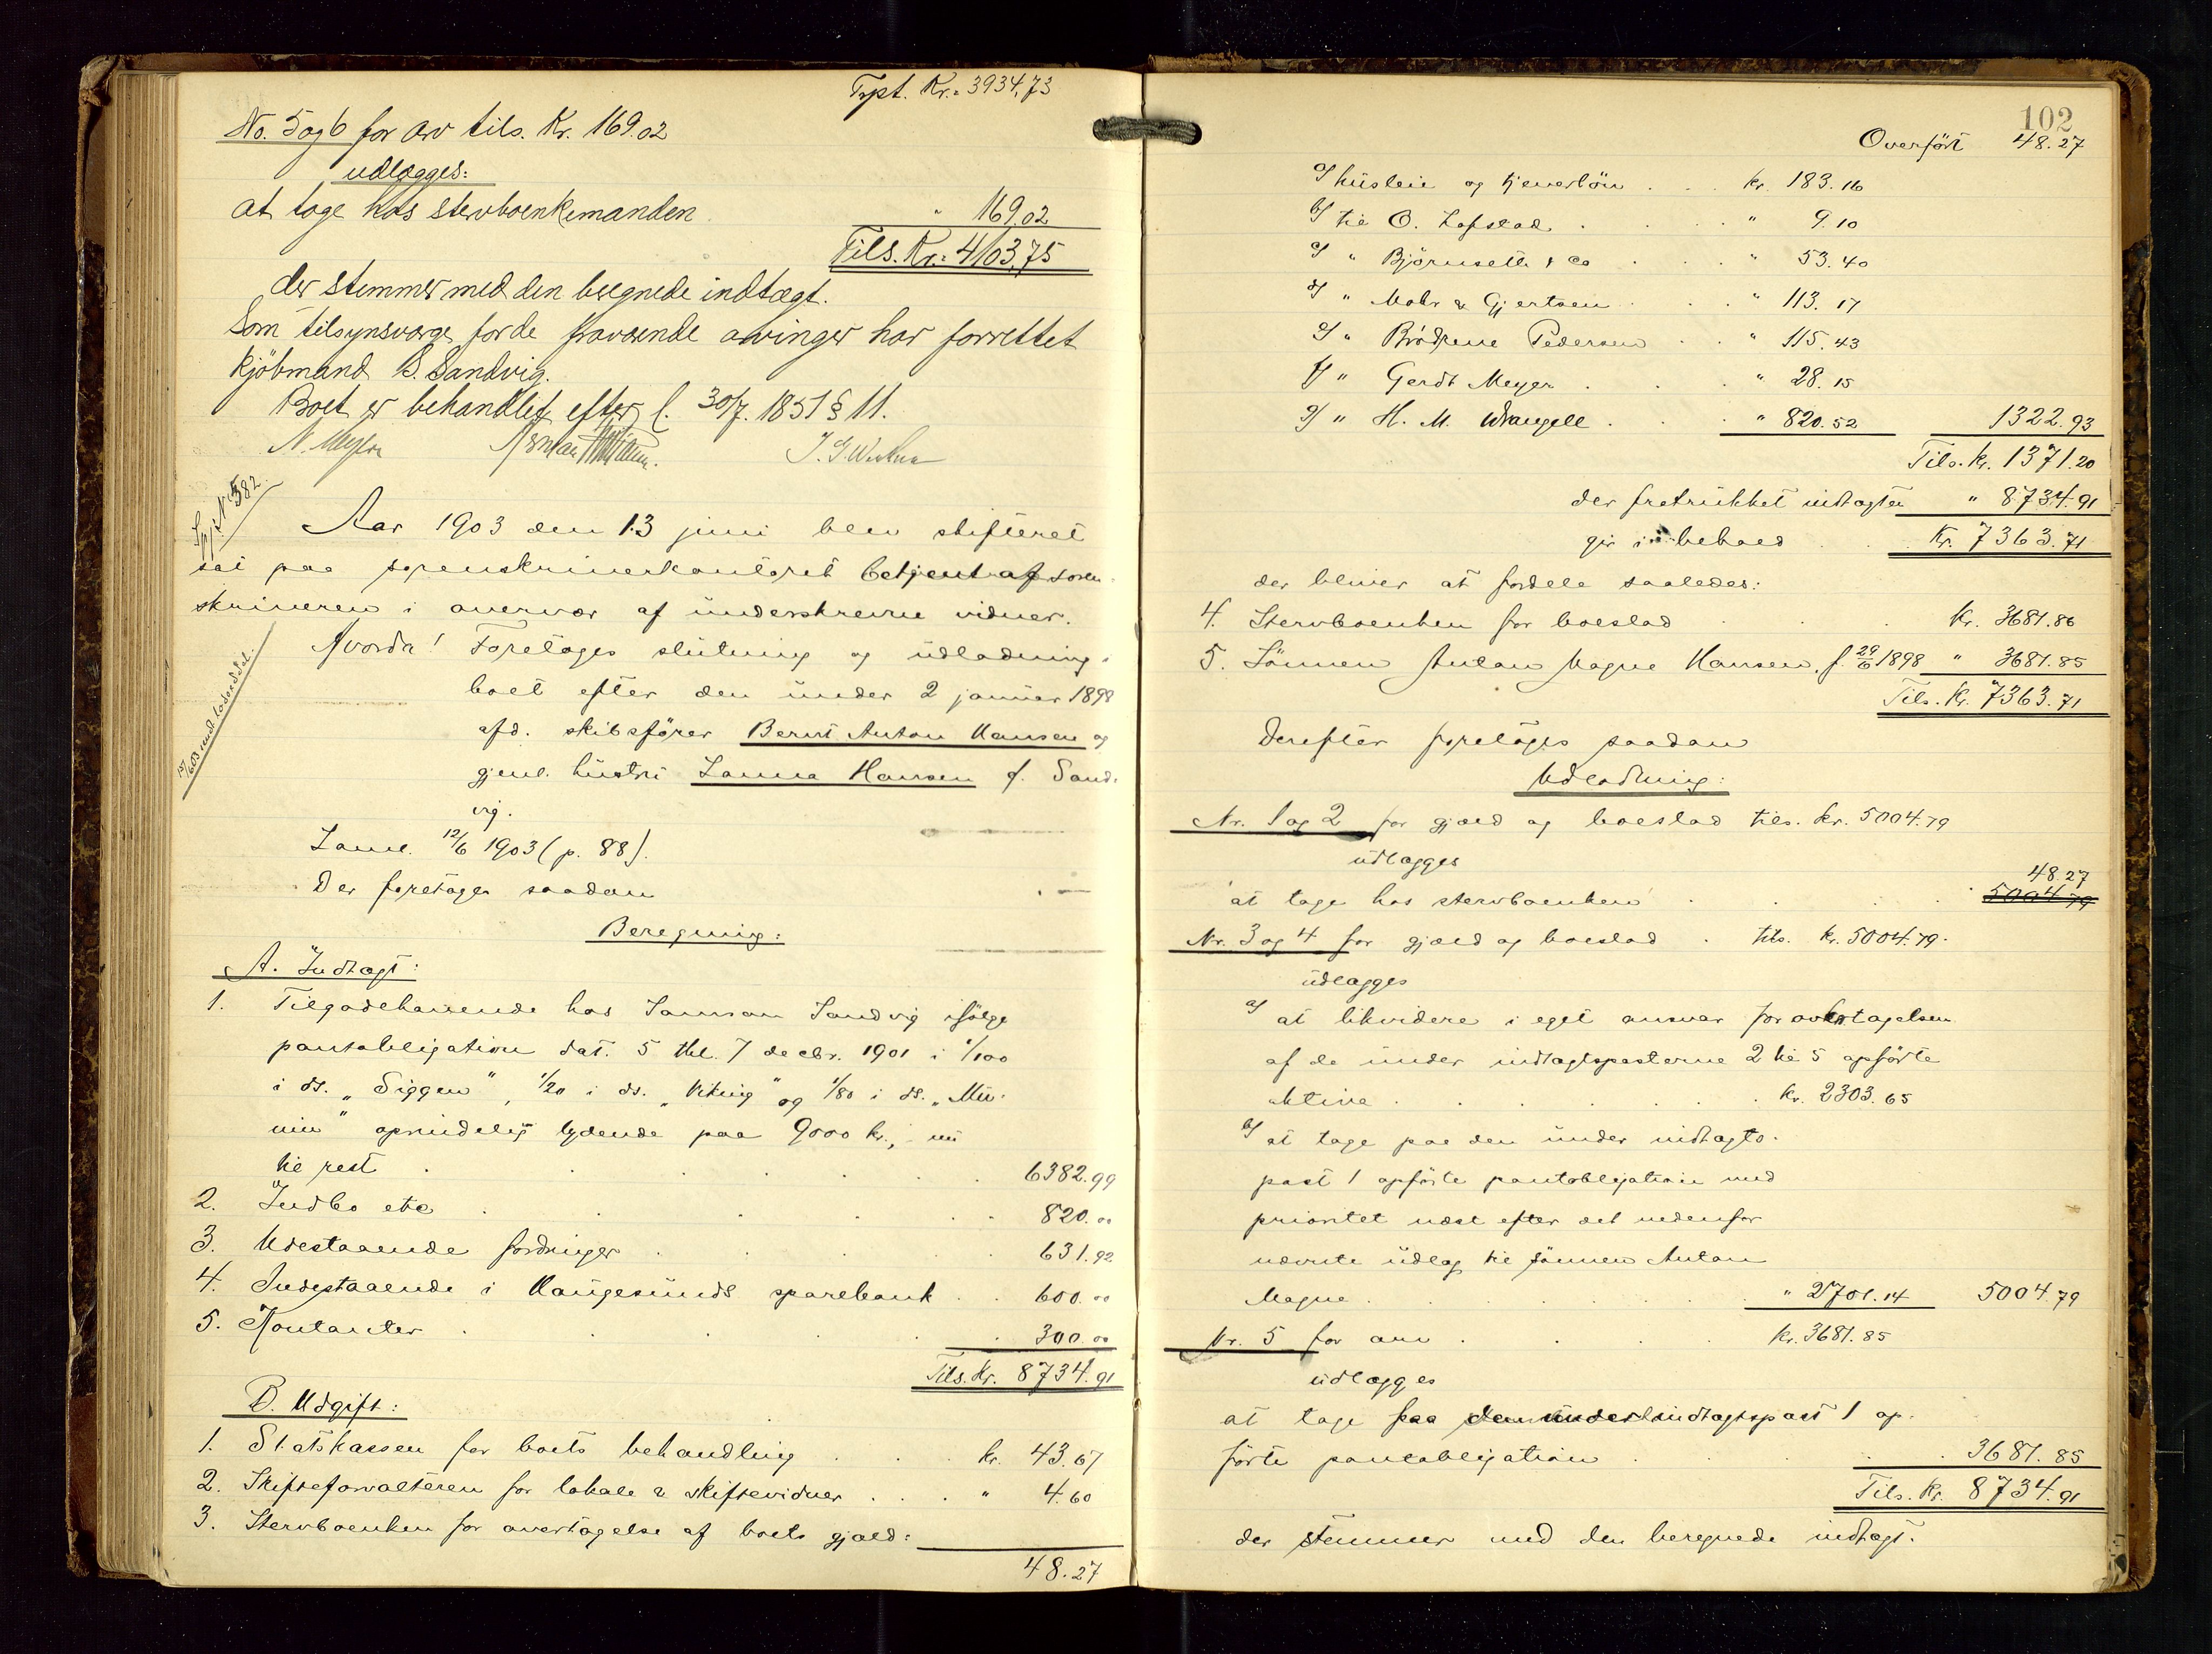 Trpt. Kr. 3934,73
No. 5 og 6 for arv tils. Kr. 169.02
udlægges:
at tage hos stervboenkemanden " 169.02
Tils. Kr. 4103,75
der stemmer med den beregnede indtægt.
Som tilsynsværge for de fraværende arvinger har forrettet
kjöbmand B. Sandvig.
Boet er behandlet efter l. 30/7. 1851 § 11.
N. Meyer
No 382.
Aar 1903 den 13 juni blev skifteret
sat paa sorenskriverkontoret betjent af soren-
skriveren i overvær af underskrevne vidner.
Hvorda! Foretoges slutning og udlodning i
boet efter den under 2 januar 1898
afd. skibsförer Bernt Anton Hansen og
gjenl. hustru Lanna Hansen f. Sand-
vig.
Saml. 12/6 1903 (p. 88).
Der foretoges saadan
Beregning:
A. Indtægt:
1. Tilgodehavende hos Samson Sandvig ifölge
pantobligation dat. 5 thl. 7 decbr. 1901 i 1/100
i ds. "Siggen", 1/20 i ds. "Viking" og 1/80 i ds. "Mu-
nin" oprindelig lydende paa 9000 kr., nu
til rest . 6382.99
2. Indbo etc . 820.00
3. Udestaaende fordringer . 631.92
4. Indestaaende i Haugesunds sparebank . . 600.00
5. Kontanter . 300.00
Tils. Kr. 8734.91
B. Udgift:
1. Statskassen for boets behandling . . kr. 43.67
2. Skifteforvalteren for lokale & skiftevidner . . . " 4.60
3. Stervboenken for overtagelse af boets gjæld:
48.27
102
Overfört 48.27
a/ husleie og tjenerlön . . kr. 183.16
b/ til O. Lofstad . " 9.10
c/ " Björnseth & Co . " 53.40
d/ " Mohr & Gjertsen . " 113.17
e/ " Brödrene Pedersen . " 115.43
f/ " Gerdt Meyer . " 28.15
g/ " H. M. Wrangell . " 820.52 1322.93
Tils. kr. 1371.20
der fratrukket indtægten " 8734.91
gir i behold . . Kr. 7363.71
der bliver at fordele saaledes:
4. Stervboenken for boeslod . Kr. 3681.86
5. Sönnen Anton Magne Hansen, f. 29/6 1898 " 3681.85
Tils. Kr. 7363.71
Derefter foretoges saadan
Udlodning:
Nr. 1 og 2 for gjæld og boeslod tils. kr. 5004.79
udlægges
48.27
at tage hos stervboenken . 5004.79
Nr. 3 og 4 for gjæld og boeslod . tils. kr. 5004.79.
udlægges
a/ at likvidere i eget ansvar for overtagelsen
af de under indtægtsposterne 2 til 5 opförte
aktiva . kr. 2303.65
b/ at tage paa den under indtægts-
post 1 opförte pantobligation med
prioritet næst efter det nedenfor
nævnte udlæg til sönnen Anton
Magne . " 2701.14 5004.79
Nr. 5 for arv . kr. 3681.85
udlægges
at tage paa den under indtægtspost 1 op-
förte pantobligation . 3681.85
Tils. Kr. 8734.91
der stemmer med den beregnede indtægt.